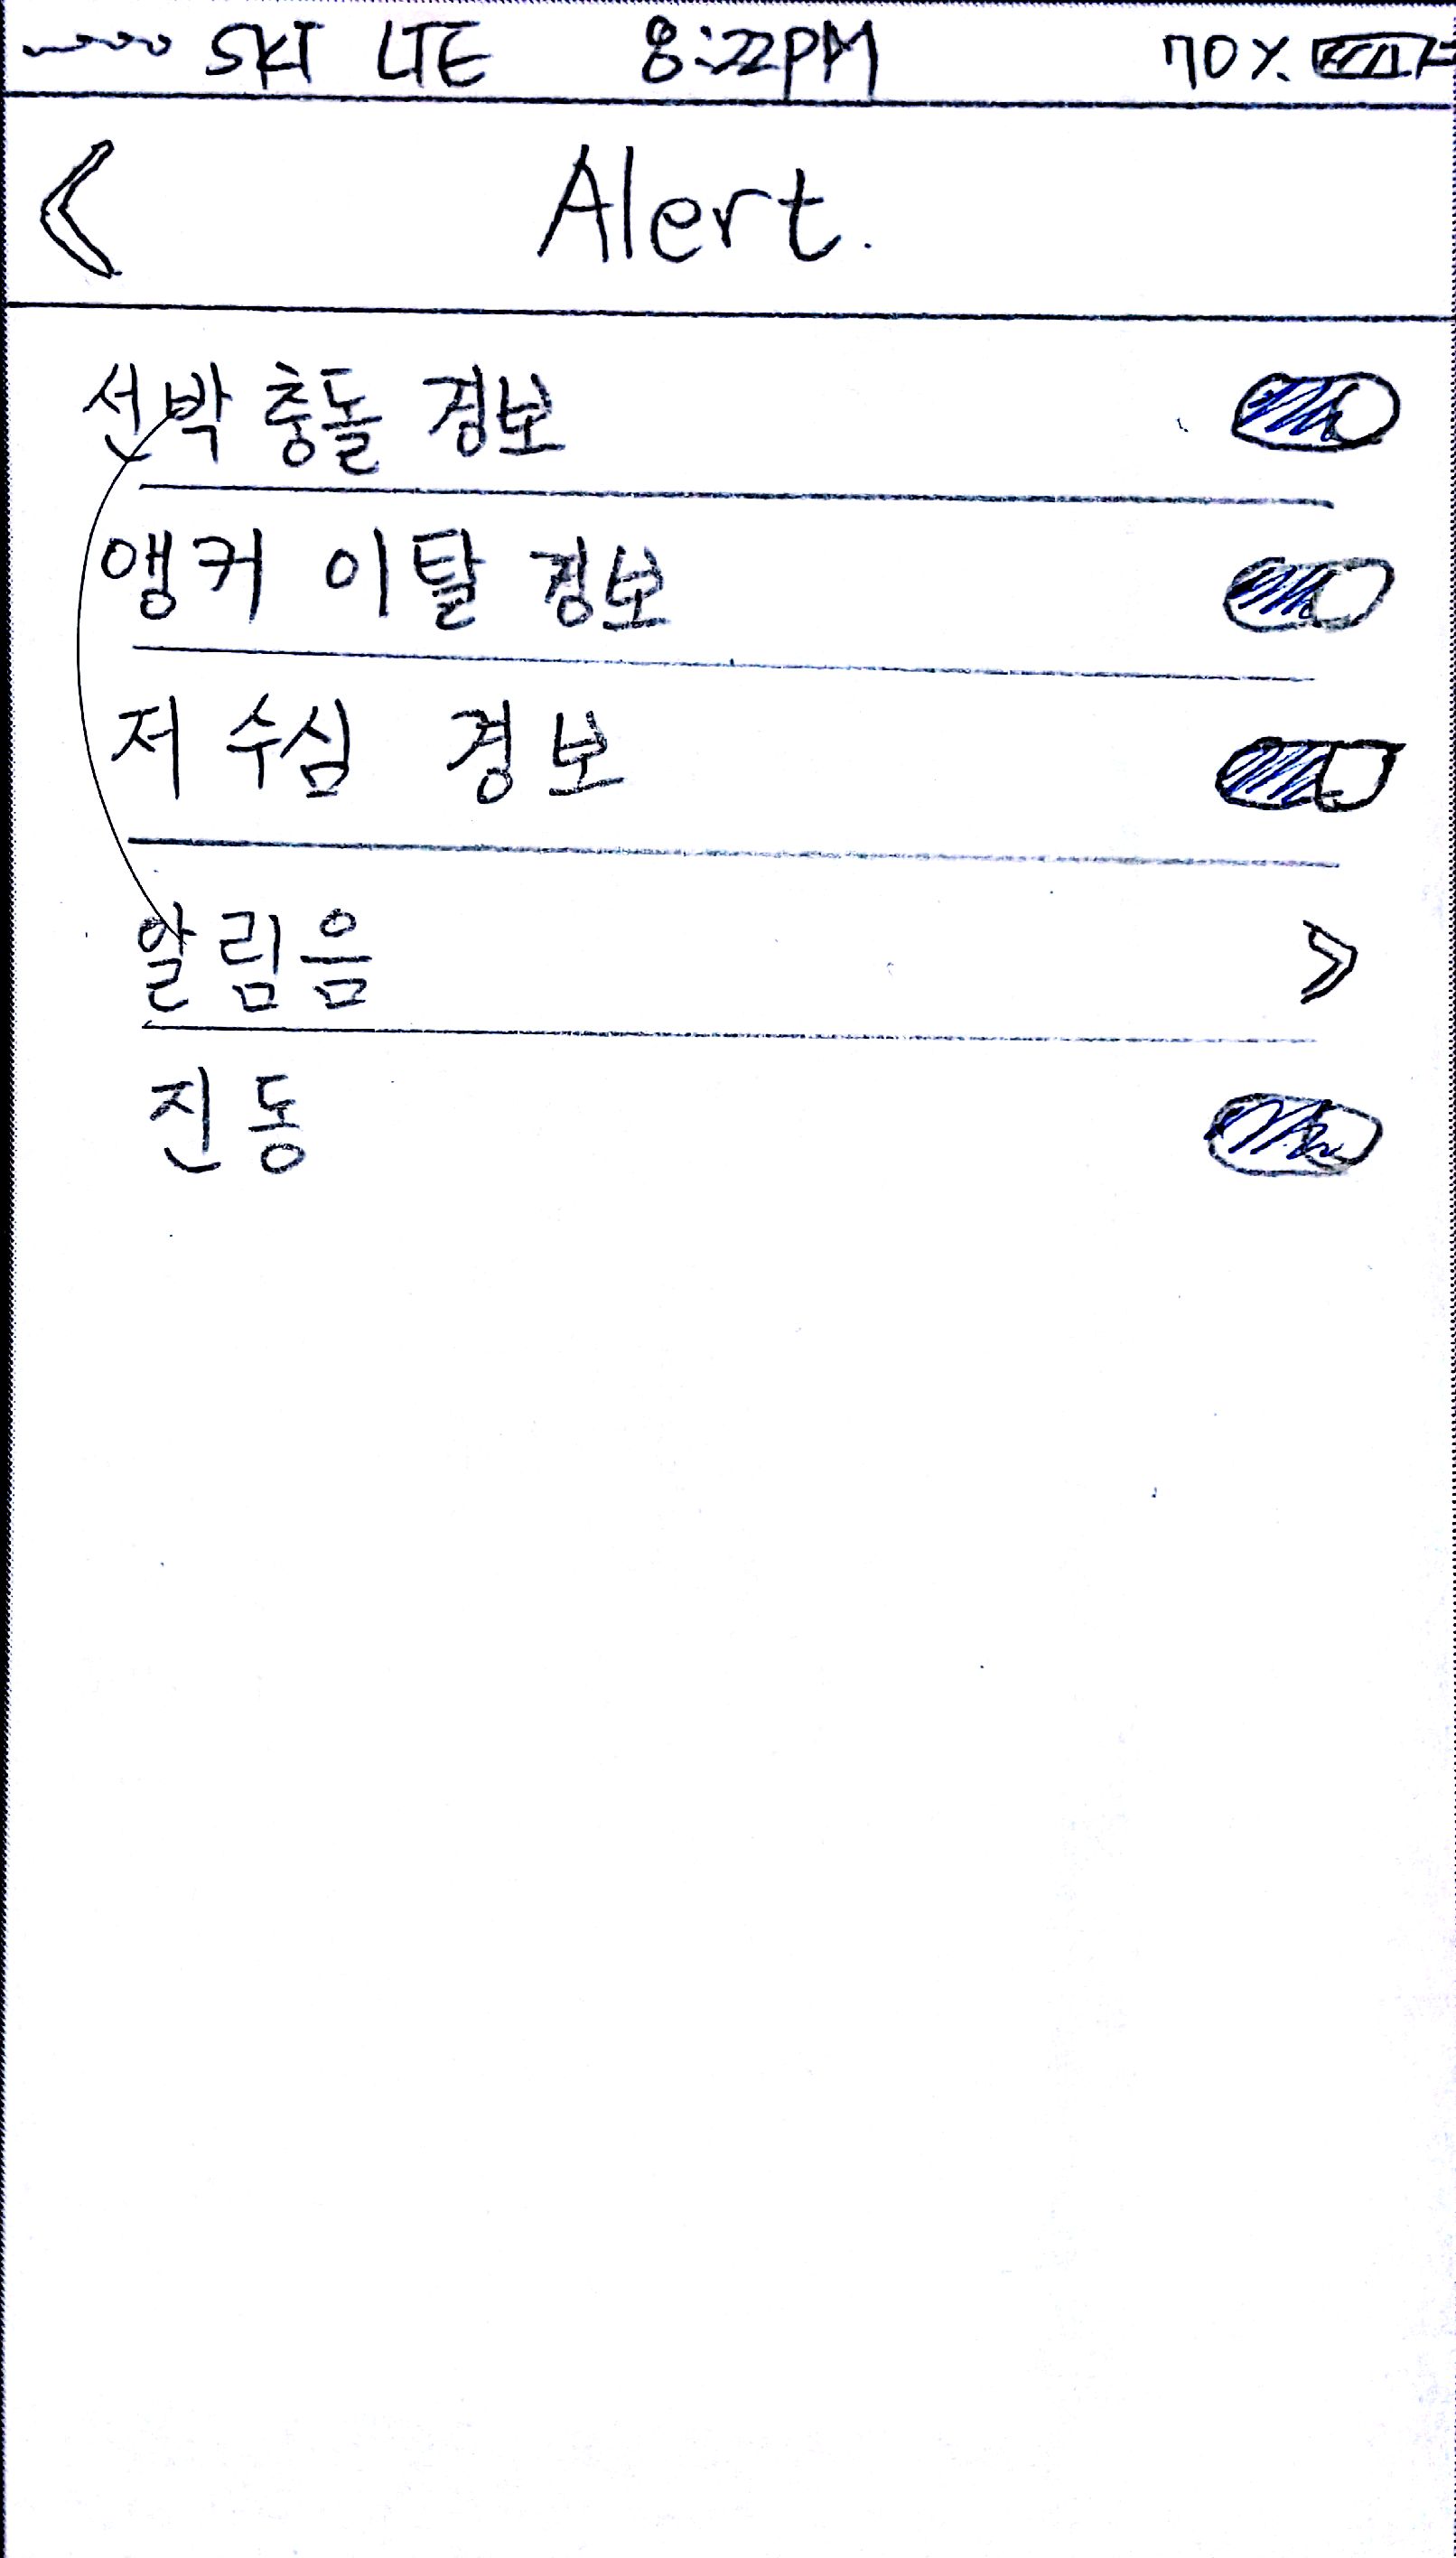 SKT LTE 8:22PM 70%
Alert.
선박 충돌 경보
앵커 이탈 경보
저 수심 경보
알림음
진동